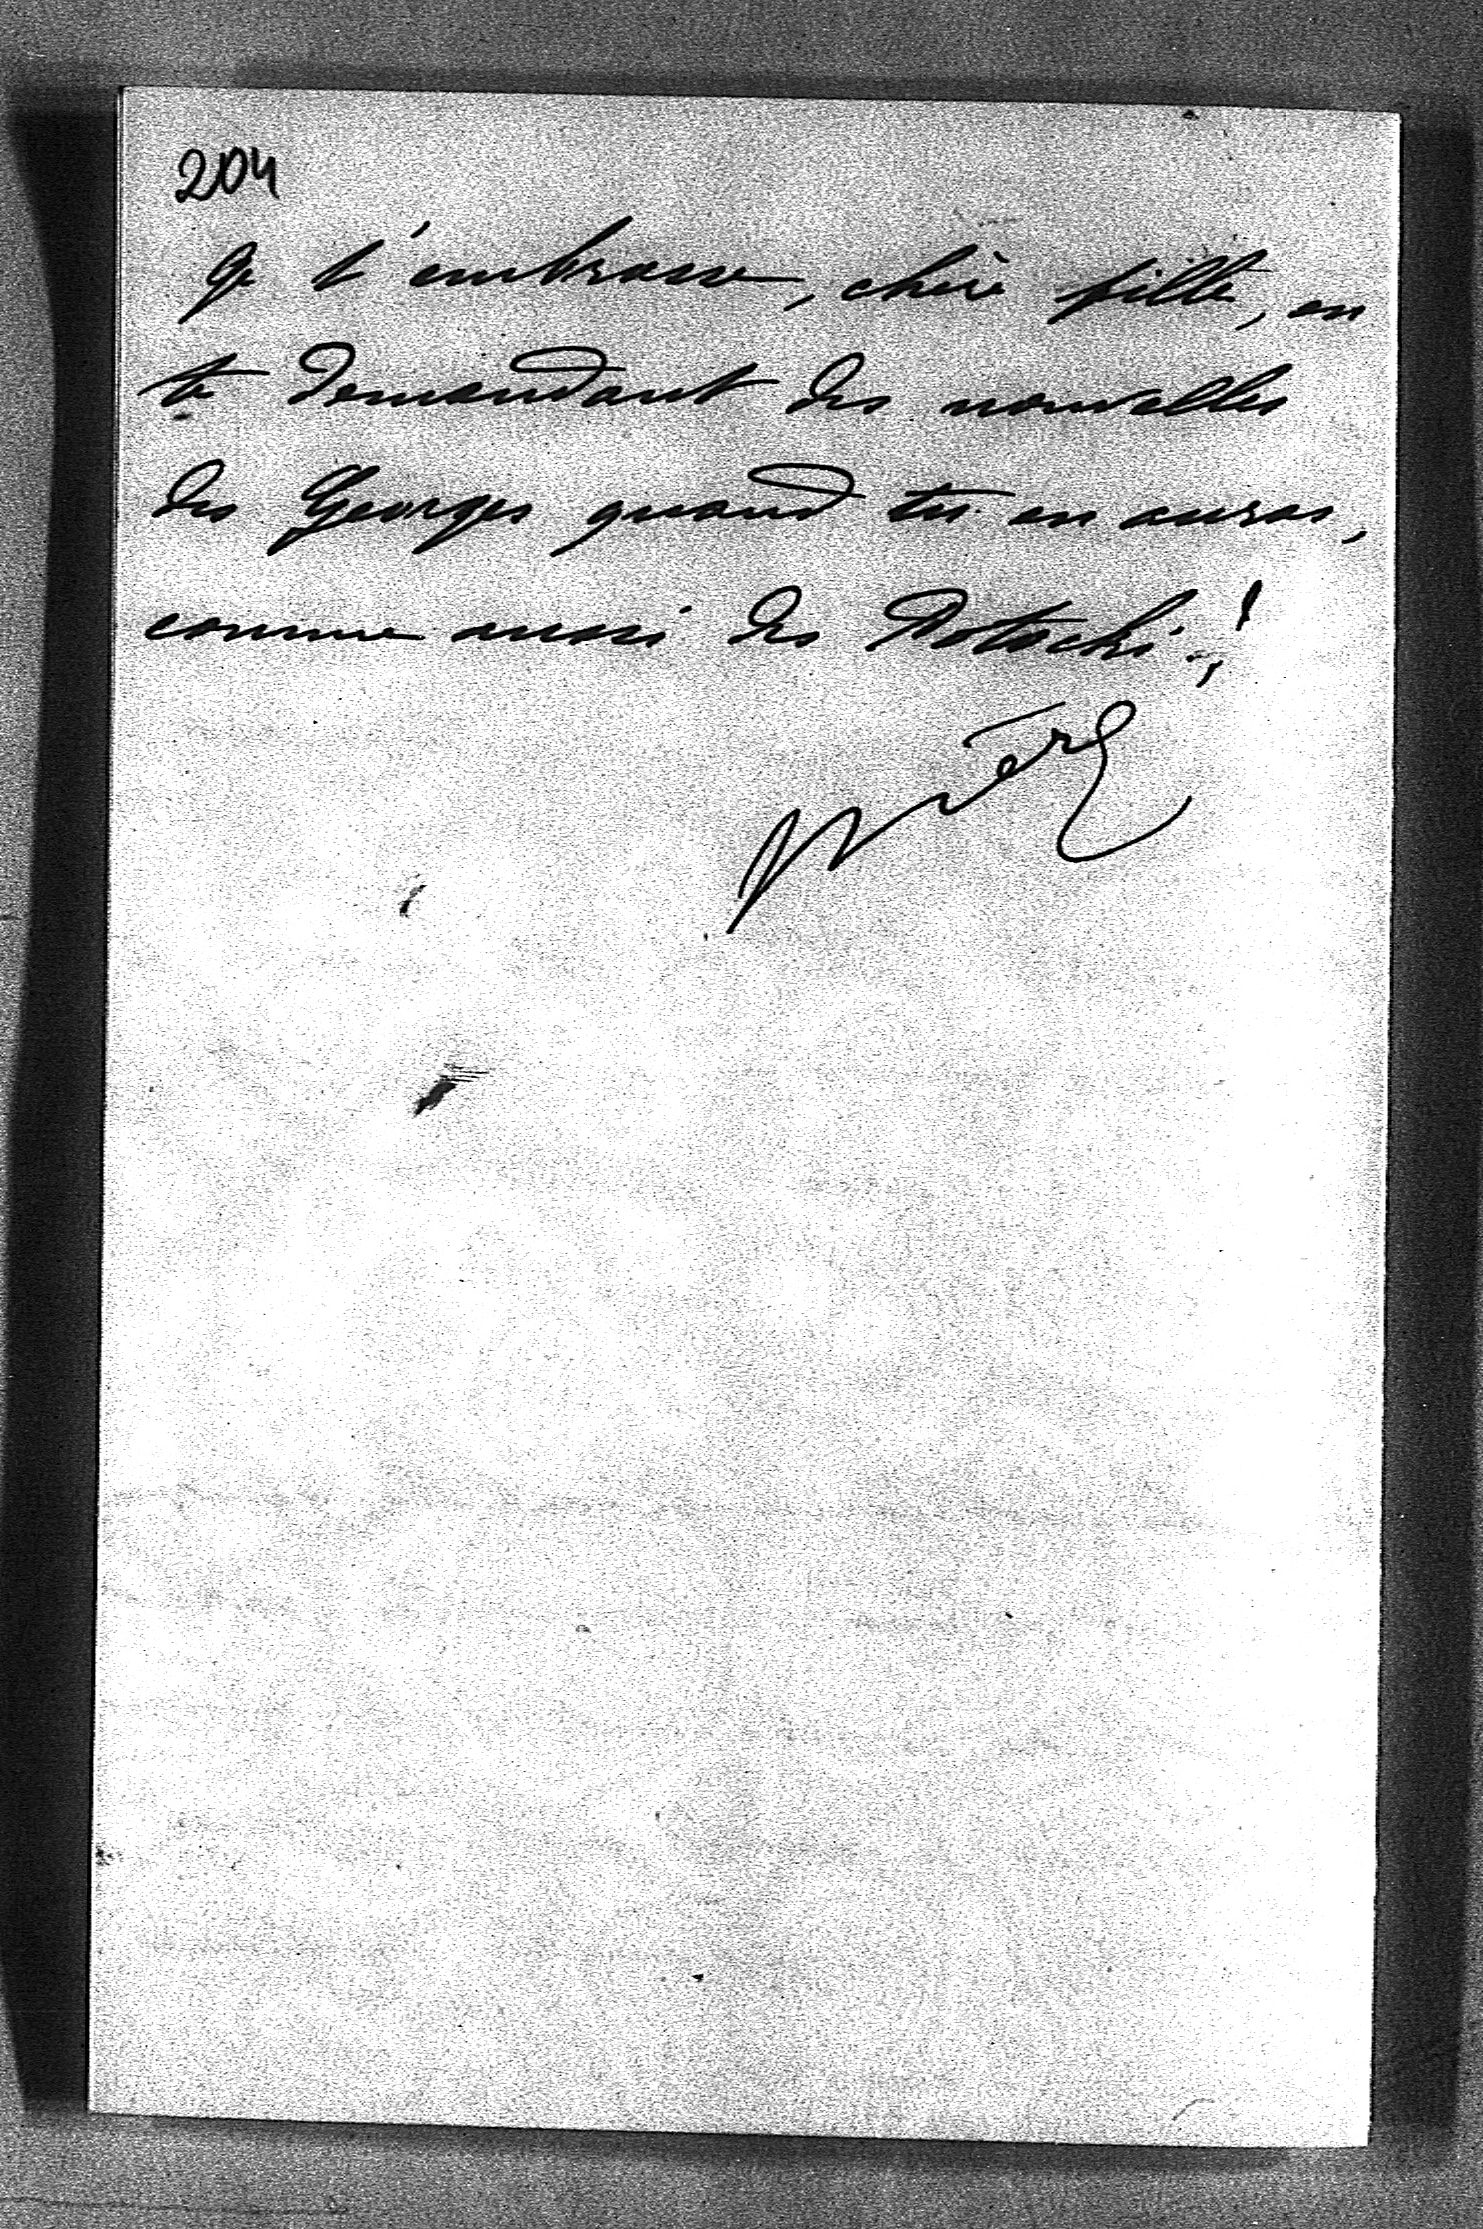 204
Je t'embrasse, chère fille, en
te demandant des nouvelles
des Georges quand tu en auras,
comme aussi des Potocki.!
Mère